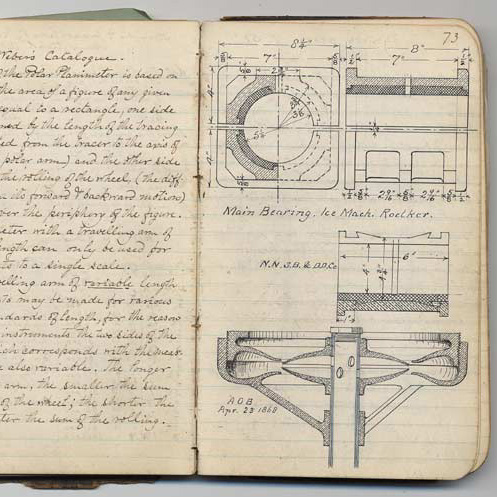 Weber's Catalogue.
the Polar Planimeter is based on
the area of a figure of any given
equal to a rectangle, one side
by the length of the tracing
from the tracer to the axis of
polar arm) and the other side
the rolling of the wheel, (the diff
its forward & backward motion)
over the periphery of the figure.
with a travelling arm of
length can only be used for
to a single scale.
travelling arm of variable length
may be made for various
standards of length, for the reason
instruments the two sides of the
corresponds with the
also variable. The longer
arm, the smaller the sum
of the wheel; the shorter the
the sum of the rolling.
73
8¼"
7"
8"
7"
4"
4"
Main Bearing. Ice Mach. Roelker.
N.N.S.B. & D.D.Co
6"
4"
A O B
Apr. 23 1868